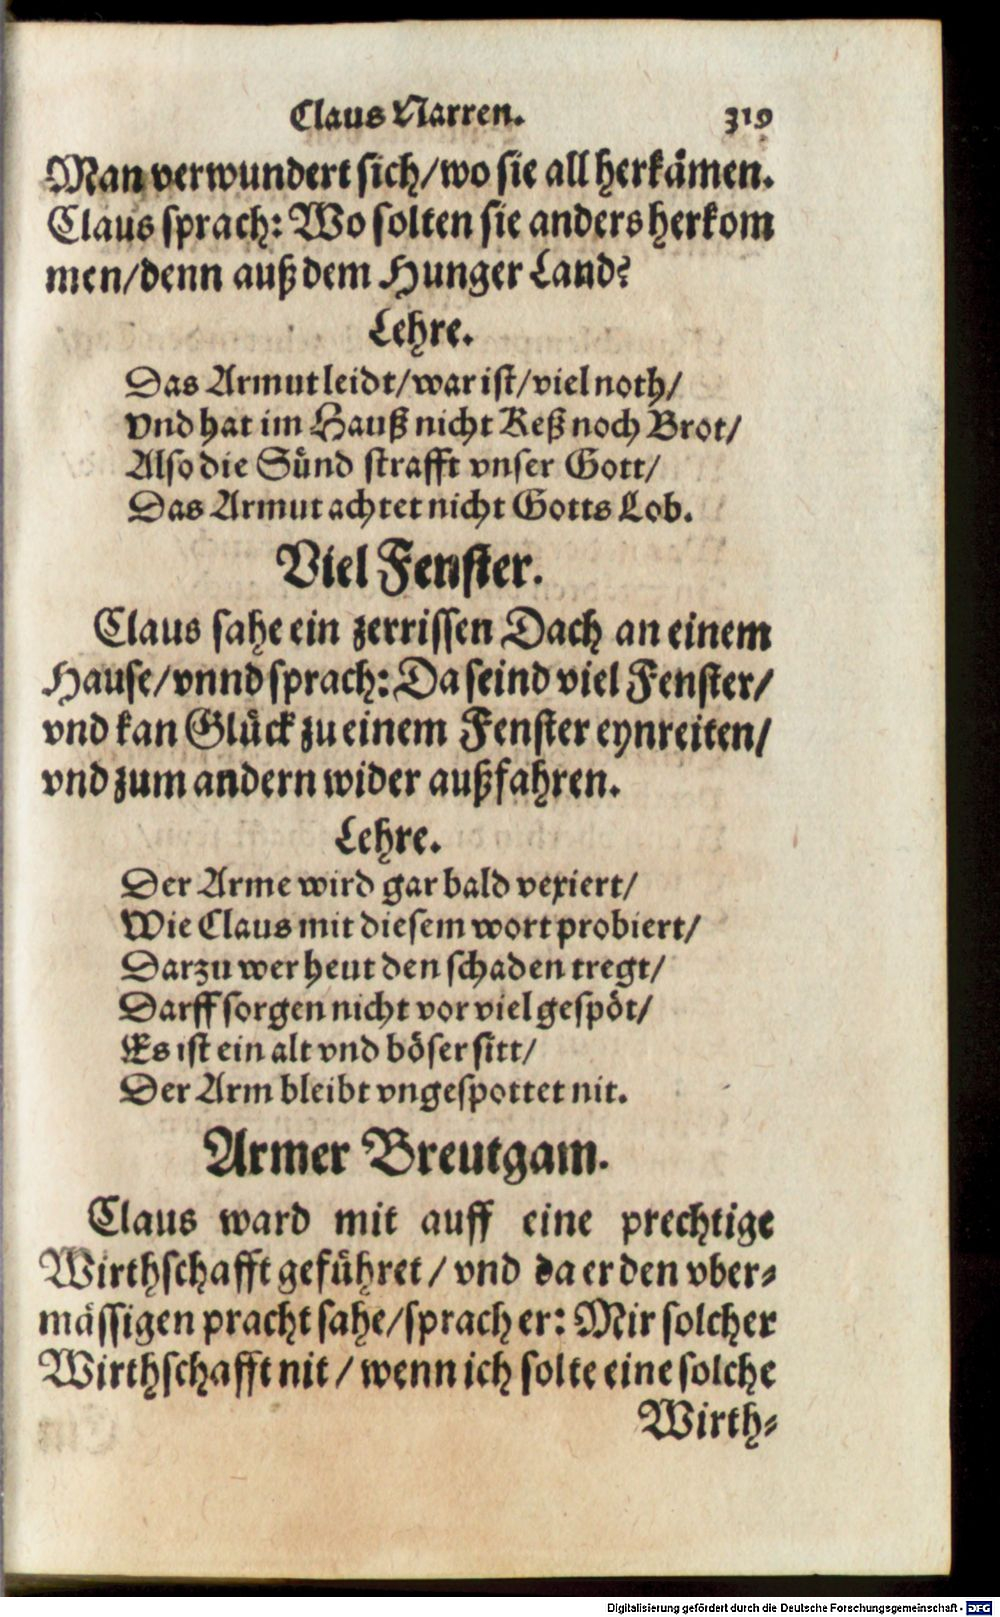 Claus Narren. 319
Man verwundert sich/wo sie all herkämen.
Claus sprach: Wo solten sie anders herkom
men/denn auß dem Hunger Land?
Lehre.
Das Armut leidt/war ist/viel noth/
Vnd hat im Hauß nicht Keß noch Brot/
Also die Sünd strafft vnser Gott/
Das Armut achtet nicht Gotts Lob.
Viel Fenster.
Claus sahe ein zerrissen Dach an einem
Hause/vnnd sprach: Da seind viel Fenster/
vnd kan Glück zu einem Fenster eynreiten/
vnd zum andern wider außfahren.
Lehre.
Der Arme wird gar bald vexiert/
Wie Claus mit diesem wort probiert/
Darzu wer heut den schaden tregt/
Darff sorgen nicht vor viel gespöt/
Es ist ein alt vnd böser sitt/
Der Arm bleibt vngespottet nit.
Armer Breutgam.
Claus ward mit auff eine prechtige
Wirthschafft geführet/ vnd da er den vber-
mässigen pracht sahe/sprach er: Mir solcher
Wirthschafft nit/ wenn ich solte eine solche
Wirth-
Digitalisierung gefördert durch die Deutsche Forschungsgemeinschaft - DFG